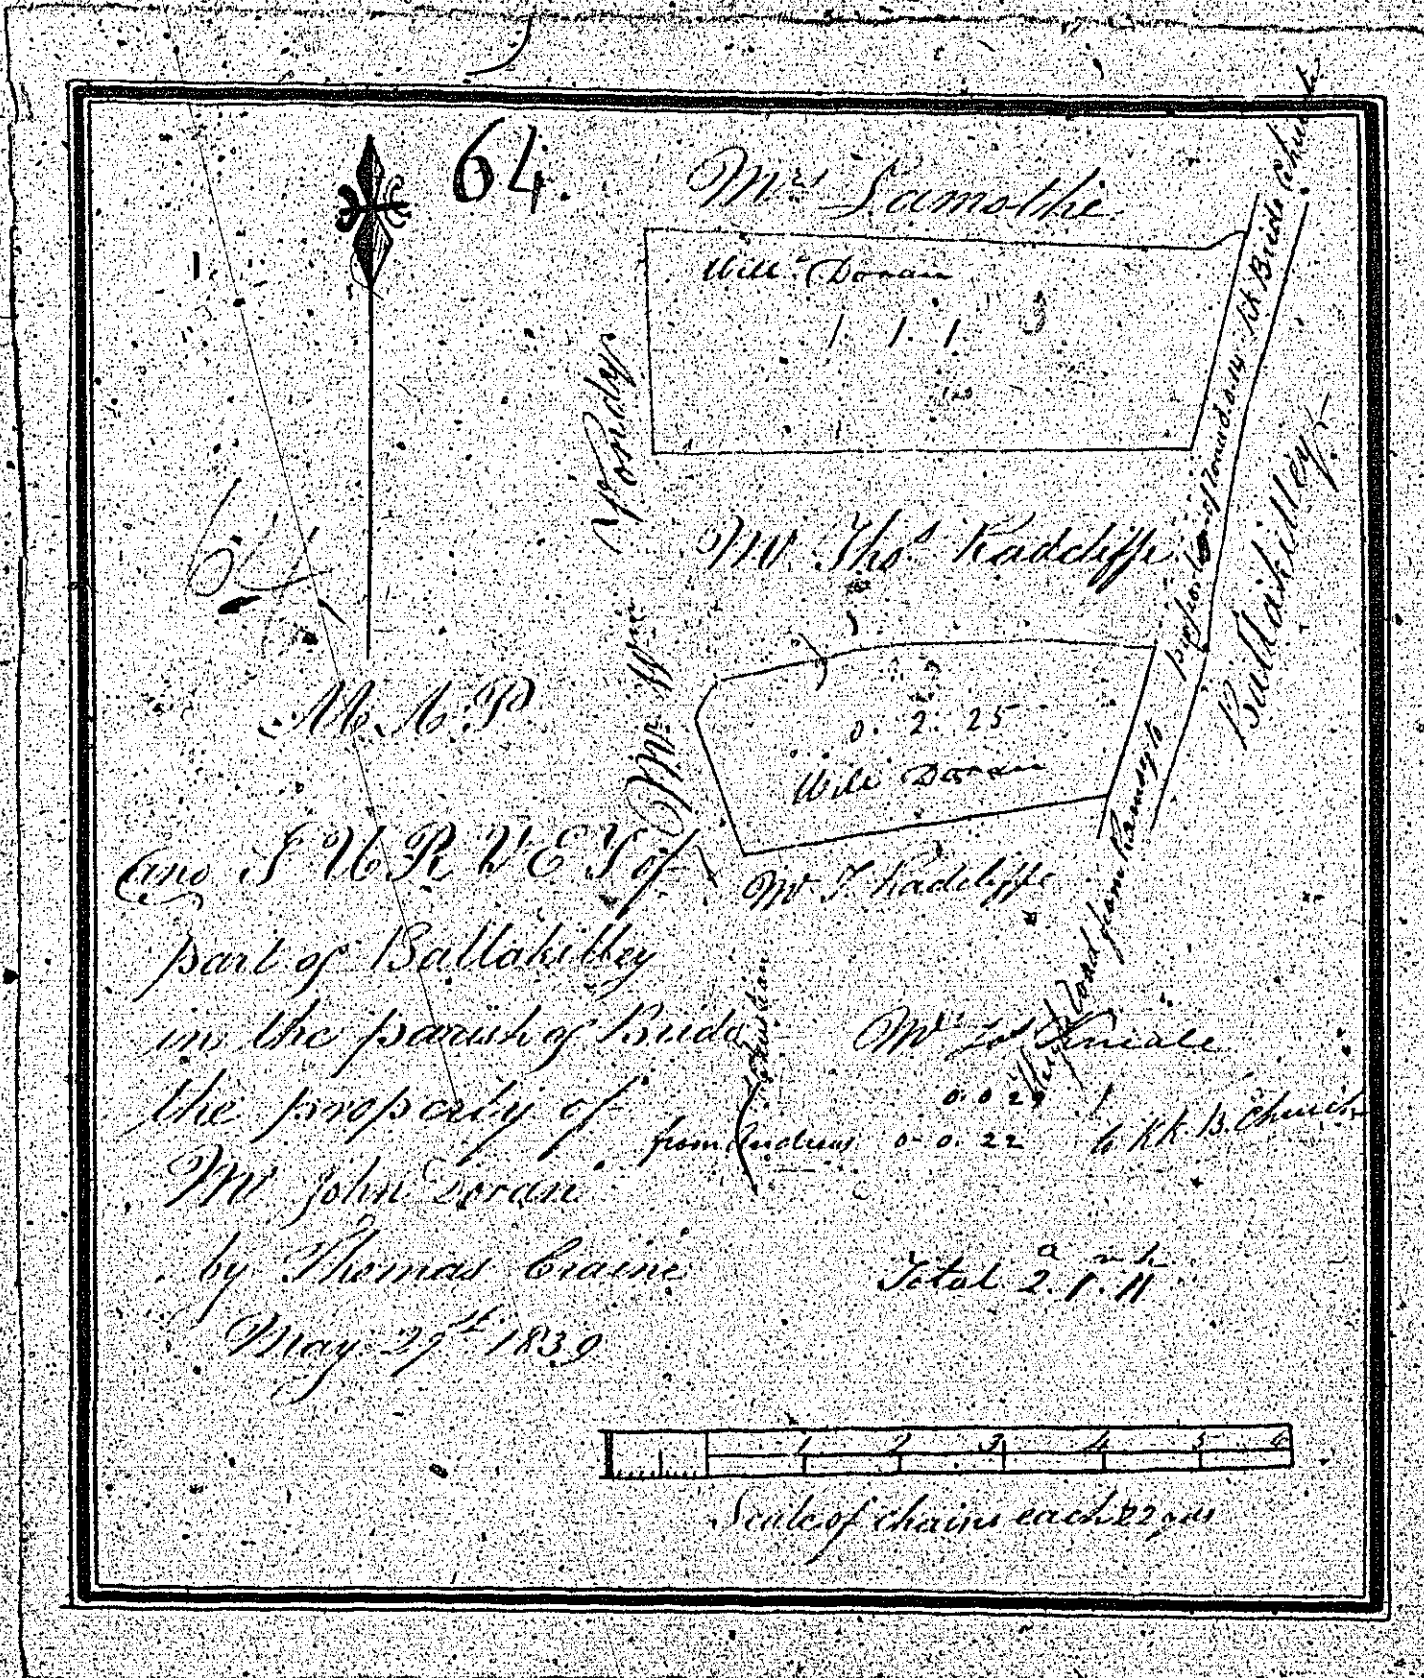 64.
Mrs Lamothe
Willm Doran
1. 1. 1
Mr Thos Radcliffe
0. 2. 25
Will Doran
Mr T Radcliffe
Ballakilley
High road from Ramsey to
KK Bride Church
MAP
and SURVEY of
part of Ballakilley
in the parish of Bride
the property of
Mr John Doran
by Thomas Craine
May 29th 1839
Mr Kneale
from Andreas 0. 0. 22 to KK B. Church
a r p
Total 2. 1. 11
1 2 3 4 5 6
Scale of chains each 22 yds